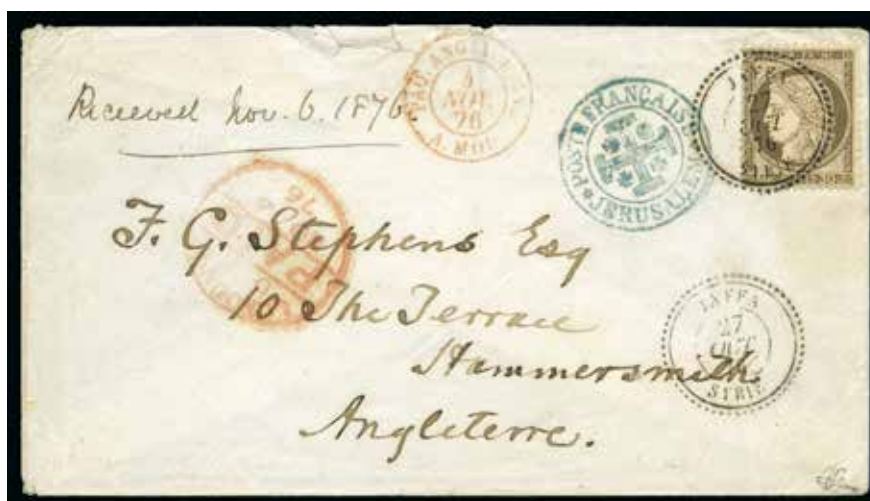 Received Nov. 6. 1876.
A. MOD.
4
NOV.
76
POSTE FRANÇAISE
JERUSALEM
F. G. Stephens Esq
10 The Terrace
Hammersmith
Angleterre.
JAFFA
27
OCT
SYRIE
JAFFA